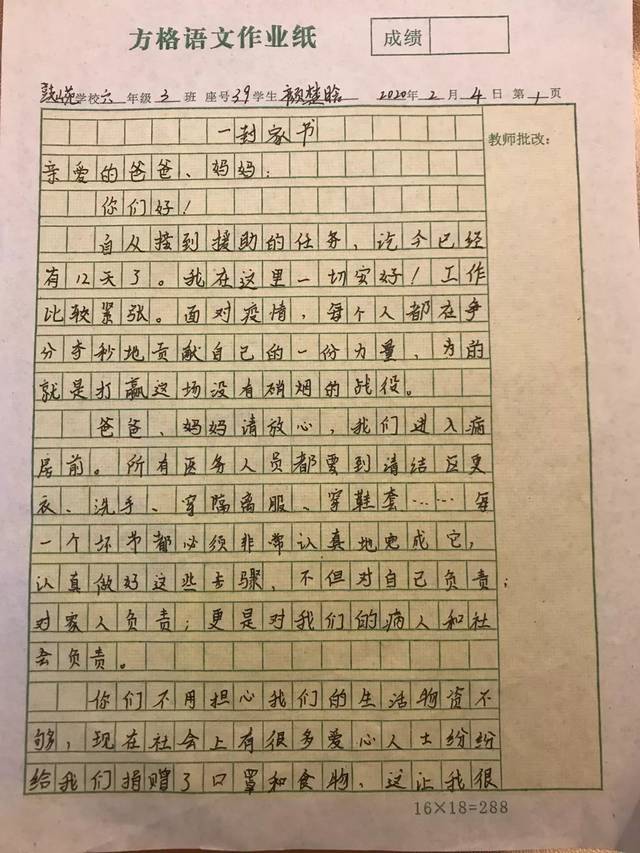 方格语文作业纸
成绩
学校六年级3班 座号39学生颜楚晗 2020年2月4日 第1页
教师批改:
一封家书
亲爱的爸爸、妈妈:
你们好!
自从接到援助的任务,迄今已经
有12天了。我在这里一切安好!工作
比较紧张。面对疫情,每个人都在争
分夺秒地贡献自己的一份力量,为的
就是打赢这场没有硝烟的战役。
爸爸、妈妈请放心,我们进入病
房前。所有医务人员都要到清结区更
衣、洗手、穿隔离服、穿鞋套……每
一个环节都必须非常认真地完成它,
认真做好这些步骤,不但对自己负责;
对家人负责;更是对我们的病人和社
会负责。
你们不用担心我们的生活物资不
够,现在社会上有很多爱心人士纷纷
给我们捐赠了口罩和食物,这让我很
16×18=288